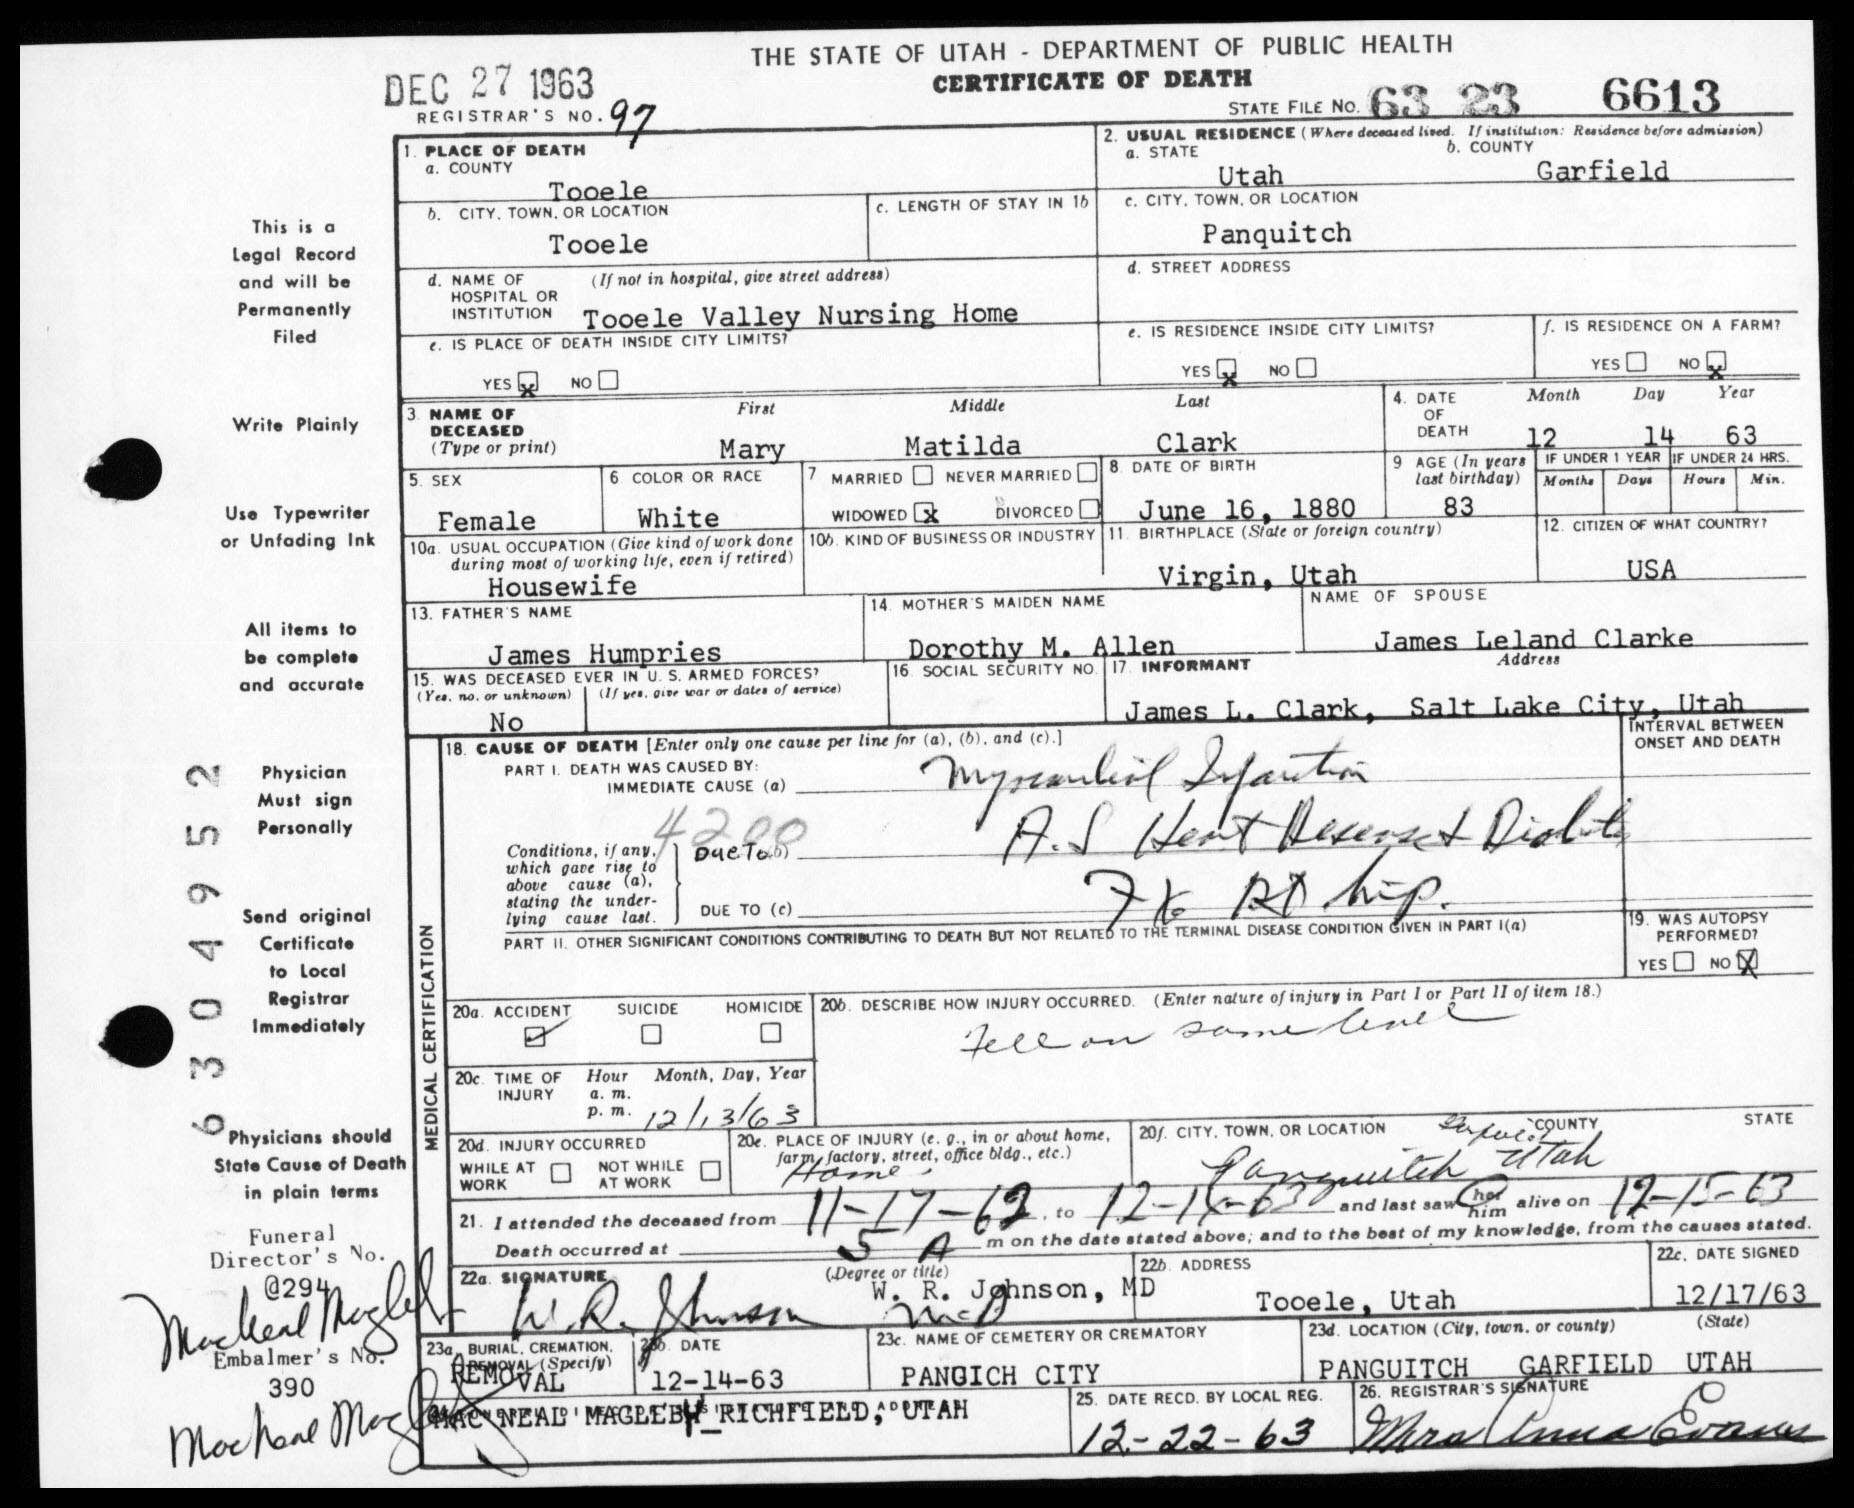 THE STATE OF UTAH - DEPARTMENT OF PUBLIC HEALTH
CERTIFICATE OF DEATH
DEC 27 1963
REGISTRAR'S NO. 97
STATE FILE NO. 63 23 6613
This is a
Legal Record
and will be
Permanently
Filed
Write Plainly
Use Typewriter
or Unfading Ink
All items to
be complete
and accurate
Physician
Must sign
Personally
Send original
Certificate
to Local
Registrar
Immediately
Physicians should
State Cause of Death
in plain terms
Funeral
Director's No.
@294
Embalmer's No.
390
630 4952
1. PLACE OF DEATH
a. COUNTY
Tooele
b. CITY, TOWN, OR LOCATION
Tooele
c. LENGTH OF STAY IN 1b
d. NAME OF HOSPITAL OR INSTITUTION (If not in hospital, give street address)
Tooele Valley Nursing Home
e. IS PLACE OF DEATH INSIDE CITY LIMITS?
YES x NO
2. USUAL RESIDENCE (Where deceased lived. If institution: Residence before admission)
a. STATE
Utah
b. COUNTY
Garfield
c. CITY, TOWN, OR LOCATION
Panquitch
d. STREET ADDRESS
e. IS RESIDENCE INSIDE CITY LIMITS?
YES x NO
f. IS RESIDENCE ON A FARM?
YES NO x
3. NAME OF DECEASED (Type or print)
First Middle Last
Mary Matilda Clark
4. DATE OF DEATH
Month Day Year
12 14 63
5. SEX
Female
6 COLOR OR RACE
White
7 MARRIED NEVER MARRIED
WIDOWED x DIVORCED
8. DATE OF BIRTH
June 16, 1880
9 AGE (In years last birthday)
83
IF UNDER 1 YEAR
Months Days
IF UNDER 24 HRS.
Hours Min.
10a. USUAL OCCUPATION (Give kind of work done during most of working life, even if retired)
Housewife
10b. KIND OF BUSINESS OR INDUSTRY
11. BIRTHPLACE (State or foreign country)
Virgin, Utah
12. CITIZEN OF WHAT COUNTRY?
USA
13. FATHER'S NAME
James Humpries
14. MOTHER'S MAIDEN NAME
Dorothy M. Allen
NAME OF SPOUSE
James Leland Clarke
15. WAS DECEASED EVER IN U. S. ARMED FORCES?
(Yes, no, or unknown) (If yes, give war or dates of service)
No
16. SOCIAL SECURITY NO.
17. INFORMANT Address
James L. Clark, Salt Lake City, Utah
MEDICAL CERTIFICATION
18. CAUSE OF DEATH [Enter only one cause per line for (a), (b), and (c).]
INTERVAL BETWEEN ONSET AND DEATH
PART I. DEATH WAS CAUSED BY:
IMMEDIATE CAUSE (a) Myocardial Infarction
4200
Conditions, if any, which gave rise to above cause (a), stating the underlying cause last.
DUE TO (b) A.S Heart Disease & Diabetes
DUE TO (c) Fx Rt hip.
PART II. OTHER SIGNIFICANT CONDITIONS CONTRIBUTING TO DEATH BUT NOT RELATED TO THE TERMINAL DISEASE CONDITION GIVEN IN PART I(a)
19. WAS AUTOPSY PERFORMED?
YES NO X
20a. ACCIDENT SUICIDE HOMICIDE
20b. DESCRIBE HOW INJURY OCCURRED. (Enter nature of injury in Part I or Part II of item 18.)
Fell on same level
20c. TIME OF INJURY
Hour Month, Day, Year
a. m.
p. m. 12/13/63
20d. INJURY OCCURRED
WHILE AT WORK NOT WHILE AT WORK
20e. PLACE OF INJURY (e. g., in or about home, farm, factory, street, office bldg., etc.)
Home
20f. CITY, TOWN, OR LOCATION COUNTY STATE
Panguitch Utah
21. I attended the deceased from 11-17-63, to 12-14-63 and last saw her him alive on 12-13-63
Death occurred at 5 A m on the date stated above; and to the best of my knowledge, from the causes stated.
22a. SIGNATURE (Degree or title)
W. R. Johnson, MD
W. R. Johnson MD
22b. ADDRESS
Tooele, Utah
22c. DATE SIGNED
12/17/63
23a. BURIAL, CREMATION, REMOVAL (Specify)
REMOVAL
23b. DATE
12-14-63
23c. NAME OF CEMETERY OR CREMATORY
PANGICH CITY
23d. LOCATION (City, town, or county) (State)
PANGUITCH GARFIELD UTAH
MAC NEAL MAGLEBY RICHFIELD, UTAH
25. DATE RECD. BY LOCAL REG.
12-22-63
26. REGISTRAR'S SIGNATURE
Mrs Anna Evans
MacNeal Magleby
MacNeal Magleby